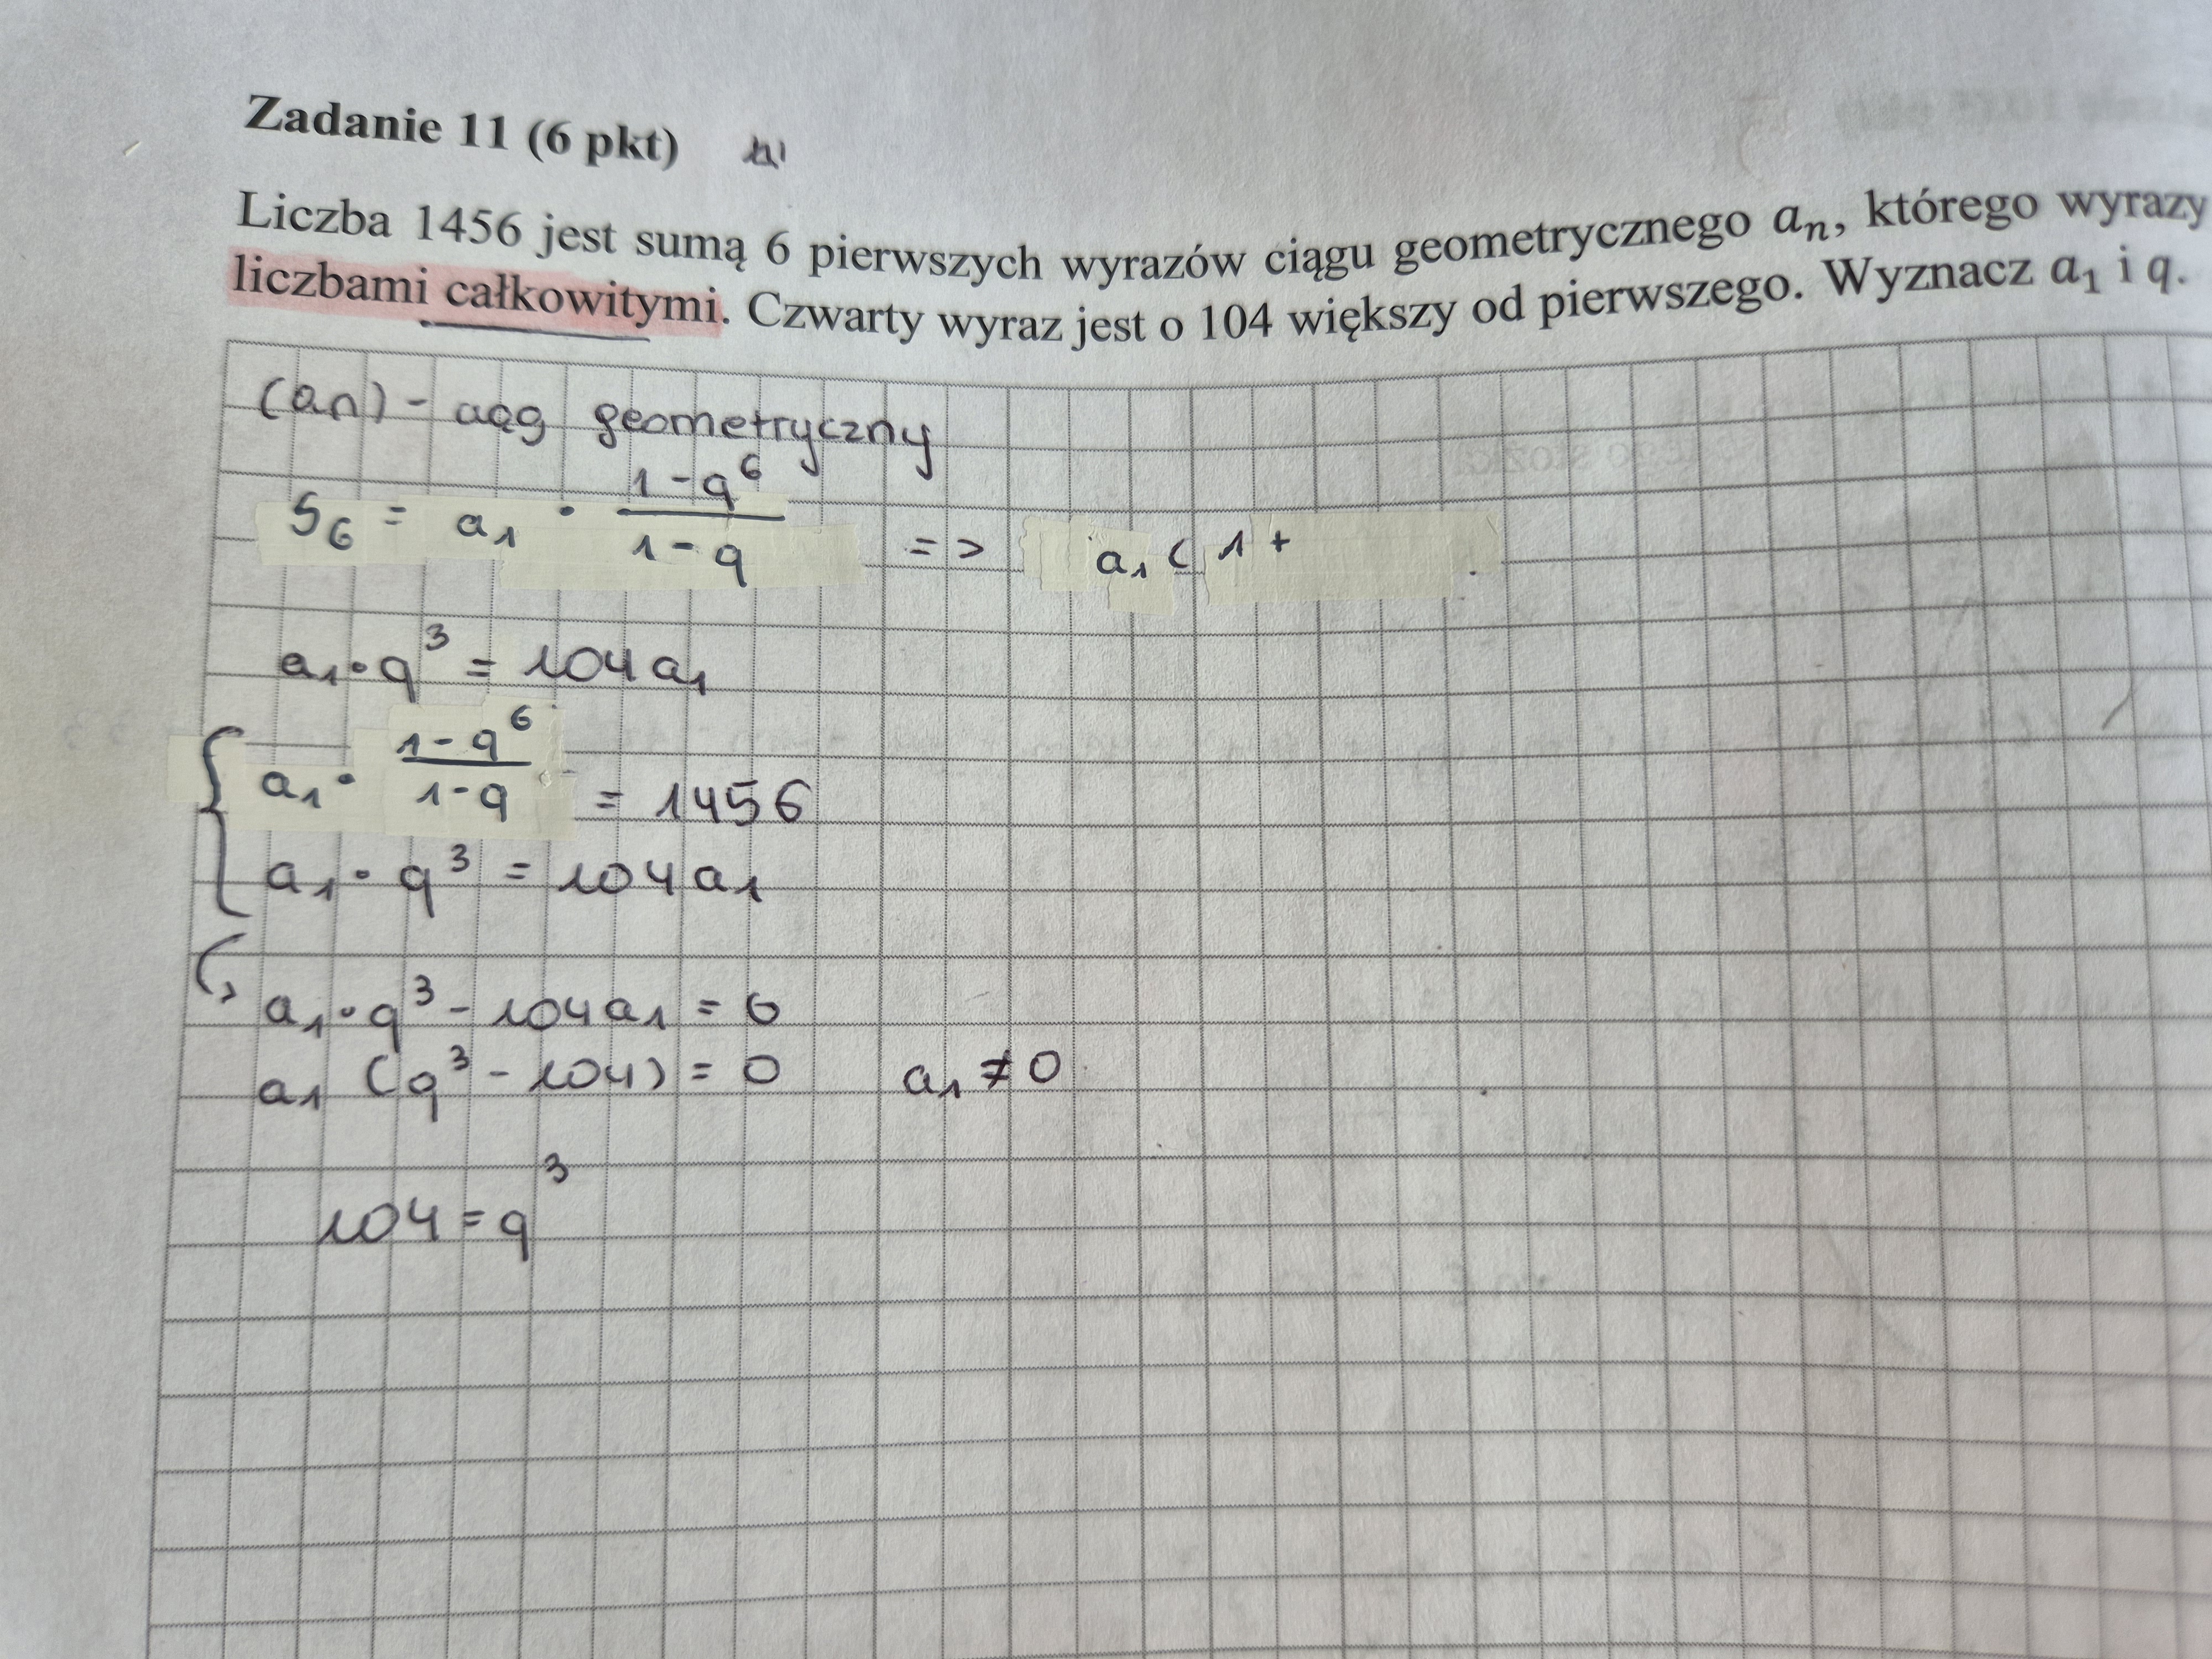 Zadanie 11 (6 pkt)
Liczba 1456 jest sumą 6 pierwszych wyrazów ciągu geometrycznego aₙ, którego wyrazy
liczbami całkowitymi. Czwarty wyraz jest o 104 większy od pierwszego. Wyznacz a₁ i q.
(an) - ciąg geometryczny
S₆ = a₁ · (1-q⁶)/(1-q) => a₁ ( 1 +
a₁ · q³ = 104 a₁
{ a₁ · (1-q⁶)/(1-q) = 1456
a₁ · q³ = 104 a₁
a₁ · q³ - 104 a₁ = 0
a₁ (q³ - 104) = 0 a₁ ≠ 0
104 = q³